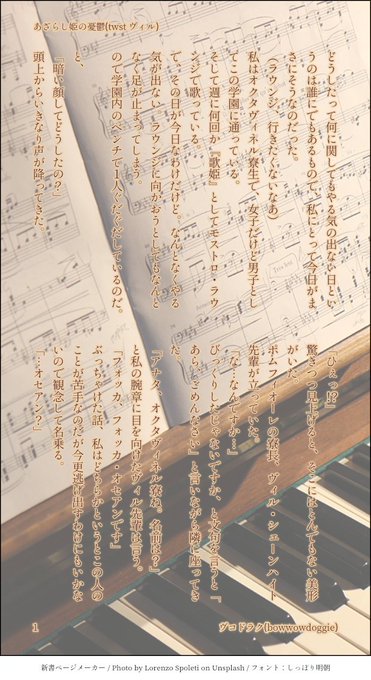 あざらし姫の憂鬱(twst ヴィル)
どうしたって何に関してもやる気の出ない日とい
うのは誰にでもあるもので、私にとって今日がま
さにそうなのだった。
(ラウンジ、行きたくないなあ)
私はオクタヴィネル寮生で、女子だけど男子とし
てこの学園に通っている。
そして週に何回か『歌姫』としてモストロ・ラウ
ンジで歌っている。
で、その日が今日なわけだけど、なんとなくやる
気が出ない。ラウンジに向かおうとしてもなんと
なく足が止まってしまう。
ので学園内のベンチで1人ぐだぐだしているのだ。
と、
「暗い顔してどうしたの?」
頭上からいきなり声が降ってきた。
「ひぇっ!?」
驚きつつ見上げると、そこにはとんでもない美形
がいた。
ポムフィオーレの寮長、ヴィル・シェーンハイト
先輩が立っていた。
「な、なんですか…」
びっくりしたじゃないですか、と文句を言うと「
あら、ごめんなさい」と言いながら隣に座ってき
た。
「アナタ、オクタヴィネル寮ね。名前は?」
と私の腕章に目を向けたヴィル先輩は言う。
「フォッカ、フォッカ・オセアンです」
ぶっちゃけた話、私はどちらかというとこの人の
ことが苦手なのだが今更逃げ出すわけにもいかな
いので観念して名乗る。
「…オセアン?」
1
ヴコドラク(bowwowdoggie)
新書ページメーカー / Photo by Lorenzo Spoleti on Unsplash / フォント：しっぽり明朝